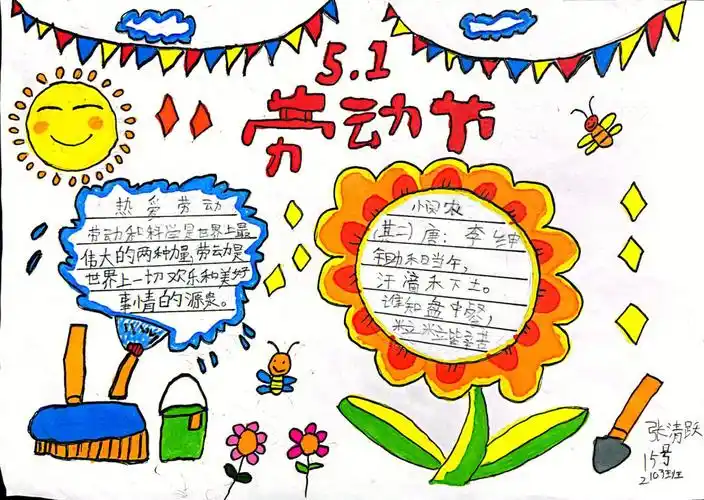 5.1
劳动节
热爱劳动
劳动和科学是世界上最
伟大的两种力量,劳动是
世界上一切欢乐和美好
事情的源泉。
悯农
(其二)唐:李绅
锄禾日当午,
汗滴禾下土。
谁知盘中餐,
粒粒皆辛苦
张清跃
15号
2103班